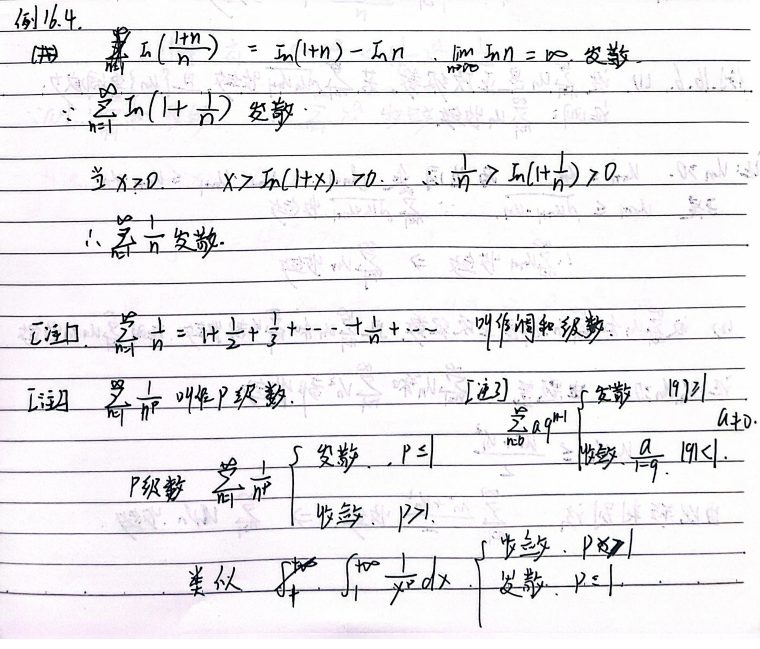 例16.4.
ln(\frac{1+n}{n}) = ln(1+n) - ln n . \lim_{n→∞} ln n = ∞ 发散.
∵ \sum_{n=1}^{∞} ln(1+\frac{1}{n}) 发散.
当 x>0. x > ln(1+x) > 0. ∴ \frac{1}{n} > ln(1+\frac{1}{n}) > 0.
∴ \sum_{n=1}^{∞} \frac{1}{n} 发散.
[注1]. \sum_{n=1}^{∞} \frac{1}{n} = 1+\frac{1}{2}+\frac{1}{3}+⋯+\frac{1}{n}+⋯ 叫作调和级数.
[注2] \sum_{n=1}^{∞} \frac{1}{n^p} 叫作P级数.
P级数 \sum_{n=1}^{∞} \frac{1}{n^p} { 发散. p≤1
收敛. p>1.
[注3] \sum_{n=0}^{∞} aq^{n-1} { 发散 |q|≥1
a≠0.
收敛. \frac{a}{1-q} |q|<1.
类似 \int_1^{+∞} \frac{1}{x^p} dx. { 收敛. p>1
发散. p≤1